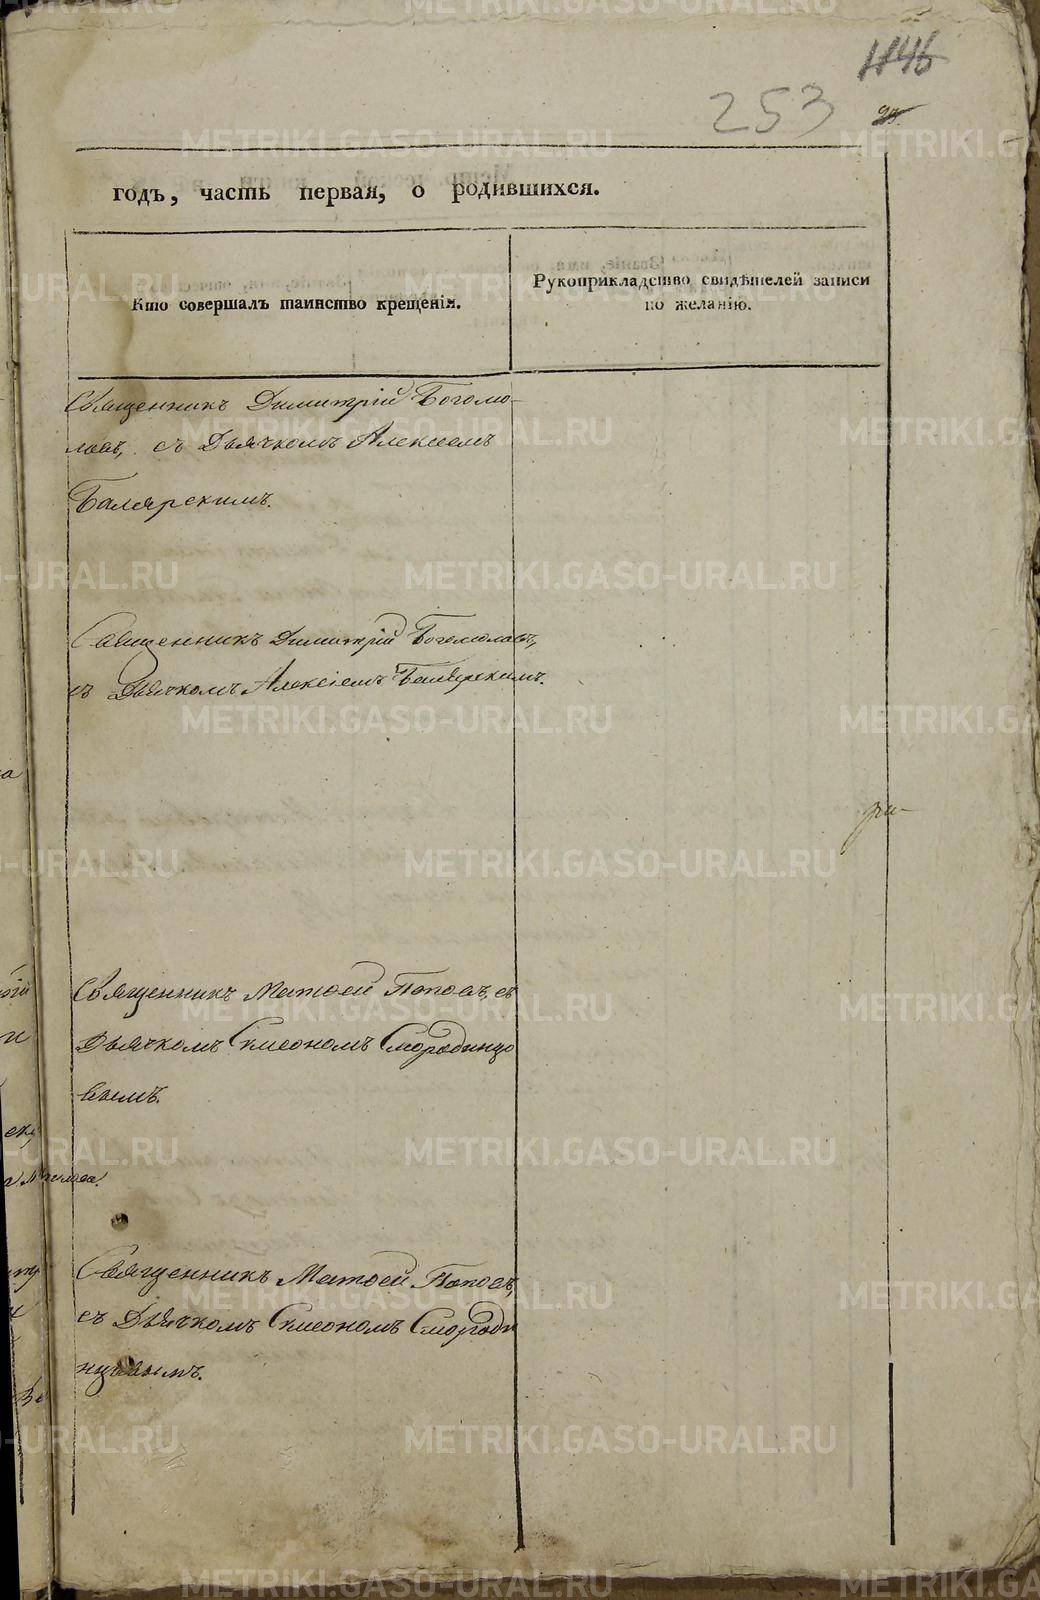 1146
253
годъ, часть первая, о родившихся.
Кто совершалъ таинство крещенія.
Рукоприкладство свидѣтелей записи
по желанію.
Священникъ Димитрій Богомо-
ловъ, съ Дьячкомъ Алексеемъ
Балярскимъ.
Священникъ Димитрій Богомоловъ,
съ Дьячкомъ Алексіемъ Балярскимъ.
Священникъ Матѳей Поповъ, съ
Дьячкомъ Симеономъ Смородинцо
вымъ.
Священникъ Матѳей Поповъ,
съ Дьячкомъ Симеономъ Смороди
нцовымъ.
METRIKI.GASO-URAL.RU